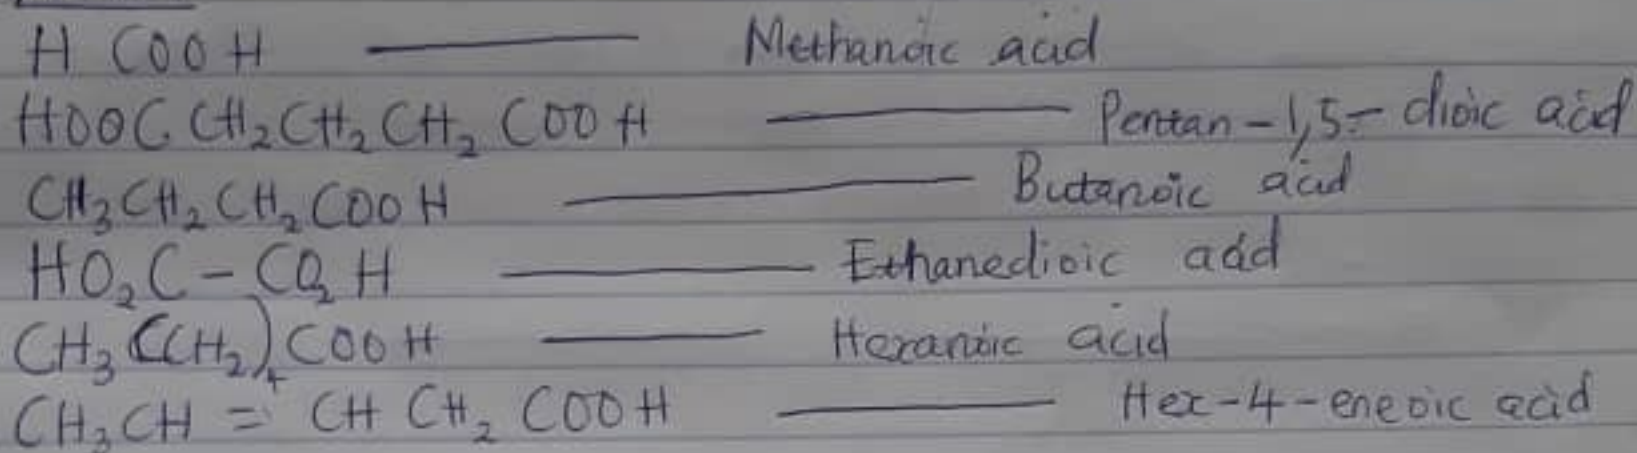 H COOH —— Methanoic acid
HOOC CH₂CH₂CH₂ COOH —— Pentan-1,5-dioic acid
CH₃CH₂CH₂COOH —— Butanoic acid
HO₂C-CO₂H —— Ethanedioic acid
CH₃(CH₂)₄COOH —— Hexanoic acid
CH₃CH = CH CH₂ COOH —— Hex-4-eneoic acid